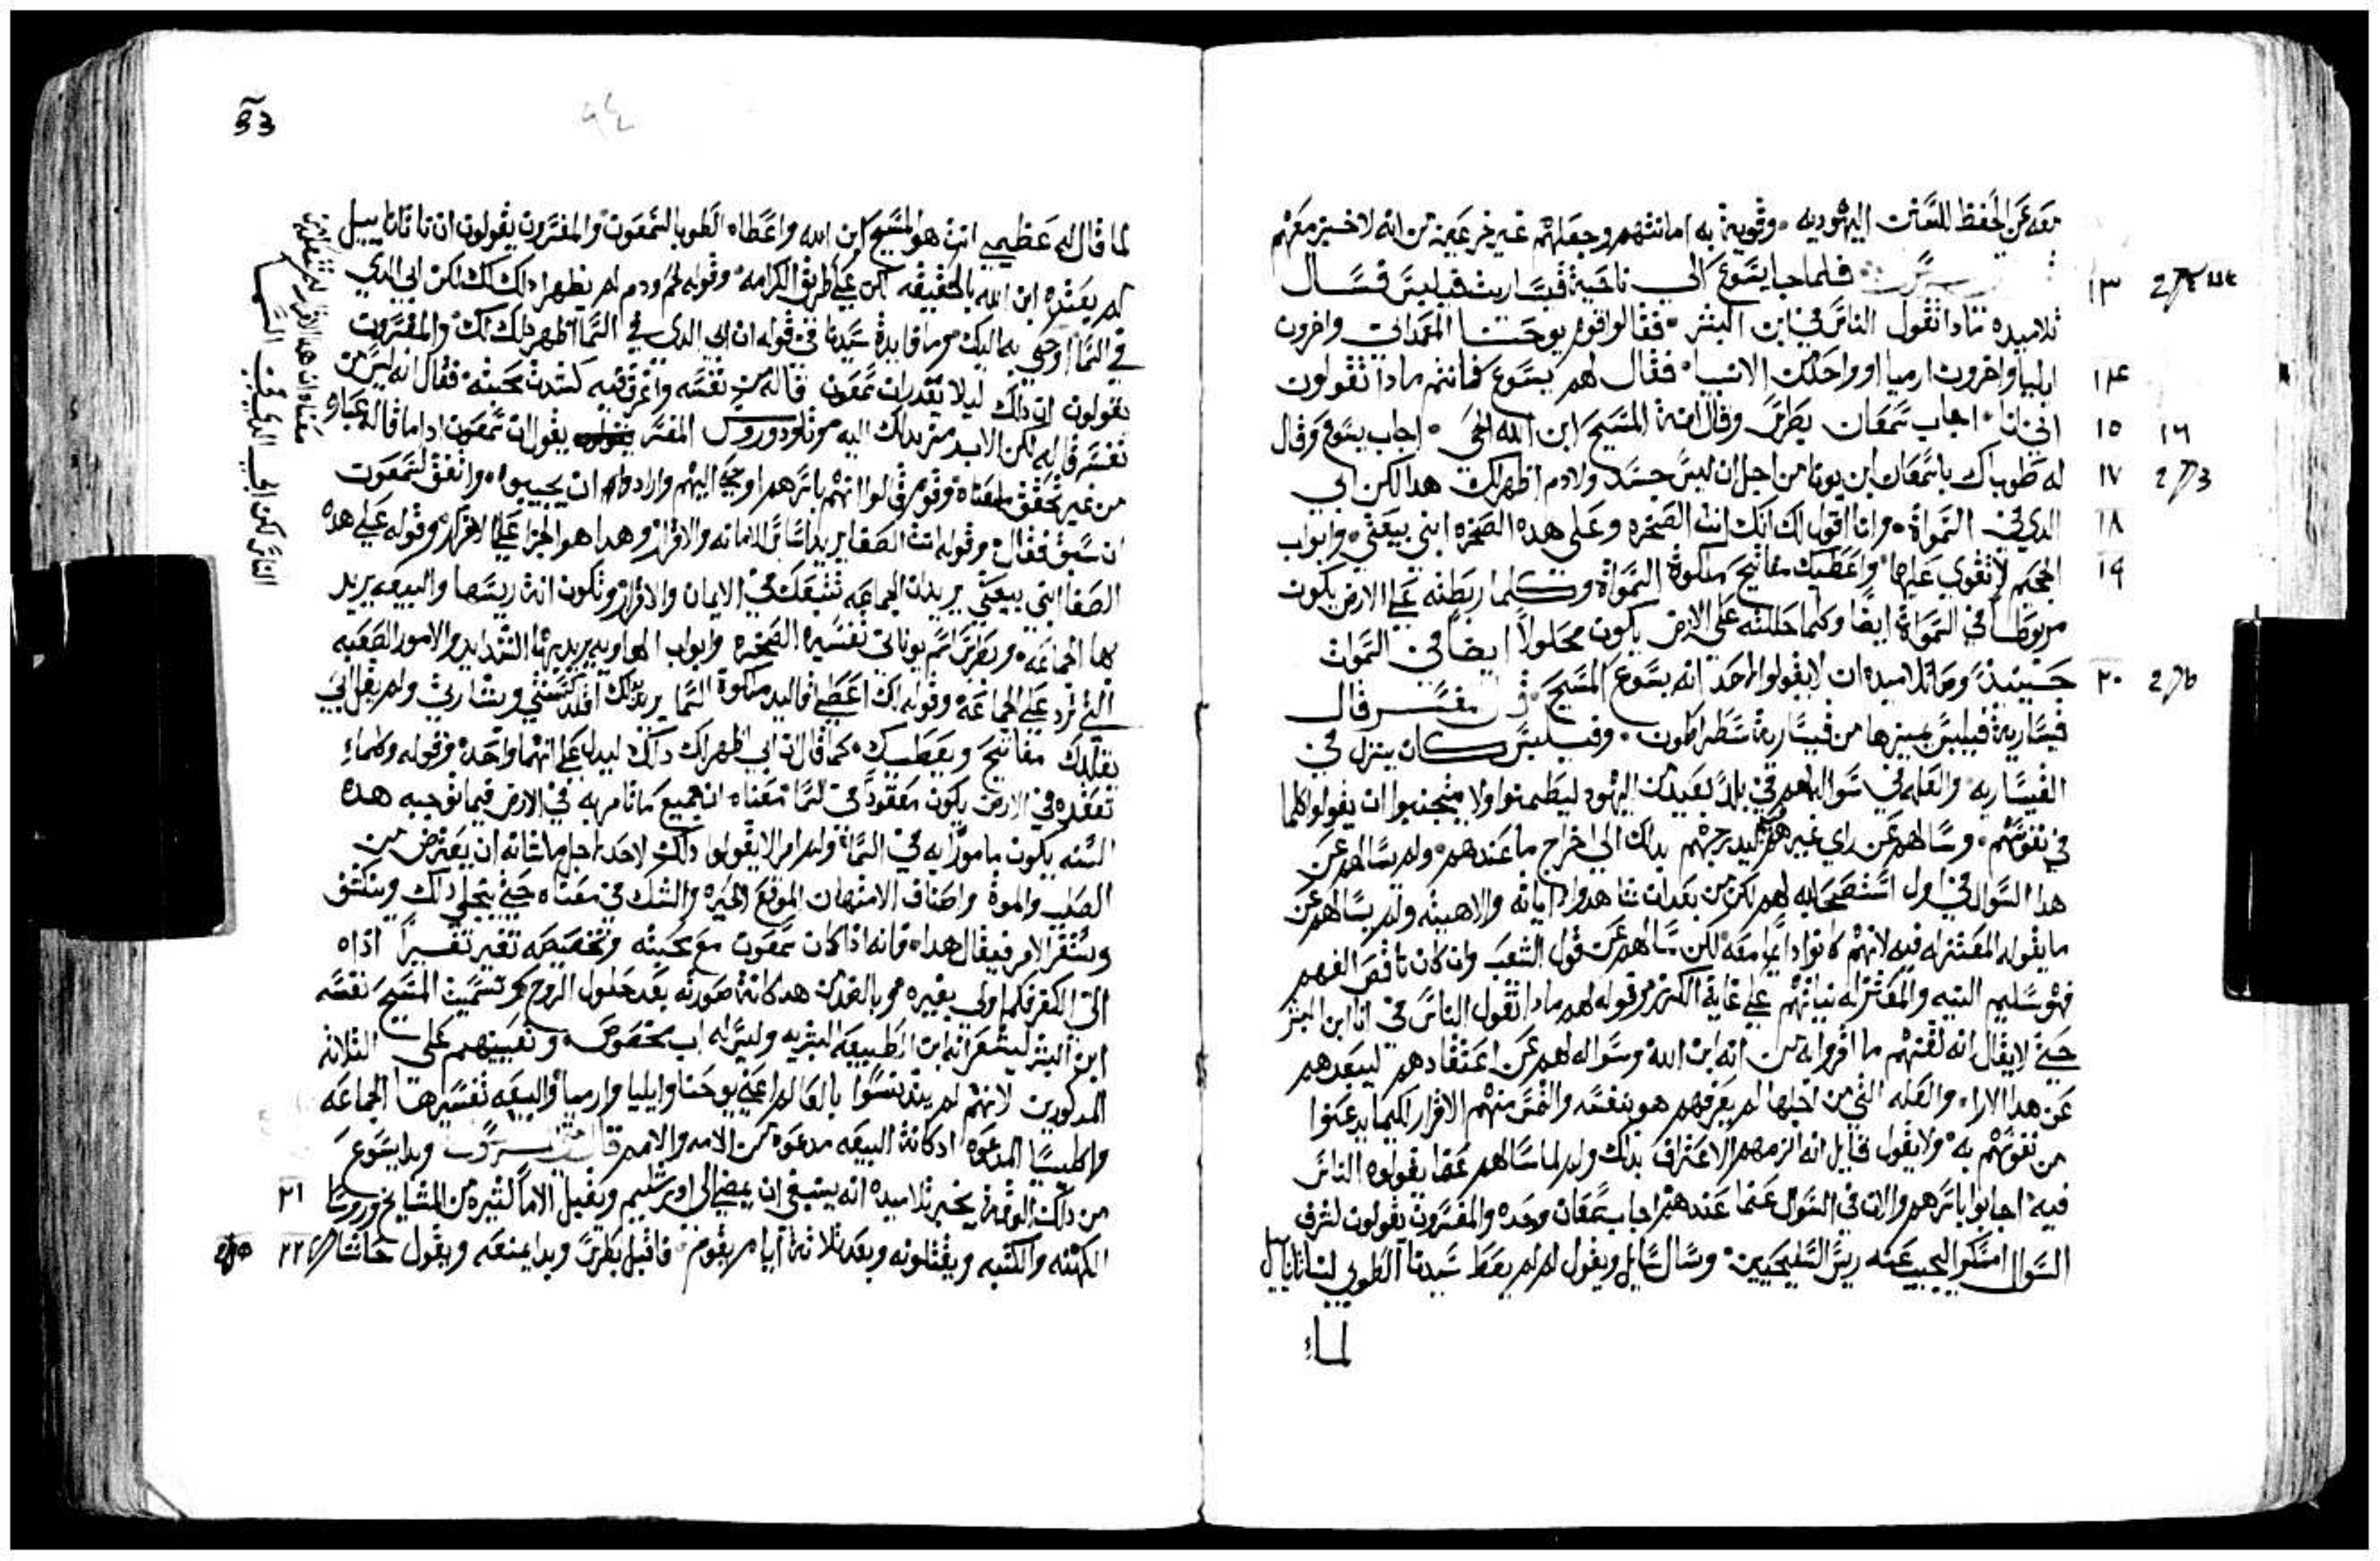 معه عن الحفظ للسنن اليهوديه وقويت به امانتهم وجعلهم غير خرعين من انه لا خبز معهم
فلما جا يسوع الى ناحية قيسارية فيلبس فسال ١٣
تلاميده مادا تقول الناس في ابن البشر فقالوا قوم يوحنا المعمدانى واخرون
ايليا واخرون ارميا او واحد من الانبيا فقال لهم يسوع فانتم مادا تقولون ١٤
اني انا اجاب سمعان بطرس وقال انت المسيح ابن الله الحي اجاب يسوع وقال ١٥ ١٦
له طوباك ياسمعان ابن يونا من اجل ان ليس جسد ولا دم اظهر لك هدا لكن ابي ١٧
الدي في السموات وانا اقول لك انك انت الصخره وعلى هده الصخره ابني بيعتي وابواب ١٨
الجحيم لا تقوي عليها واعطيك مفاتيح ملكوة السموات وكلما ربطته على الارض يكون ١٩
مربوطا في السموات ايضا وكلما حللته على الارض يكون محلولا ايضا في السموات
حينيد وصا تلاميده ان لا يقولوا لاحد انه يسوع المسيح قال المفسر قال ٢٠
قيسارية فيلبس يميزها من قيسارية سطراطون وفيلبس كان ينزل في
القيساريه والعله في سواله لهم في بلد بعيد من اليهود ليطمنوا ولا يتجنبوا ان يقولوا كلما
في نفوسهم وسالهم عن راي غيرهم ليدرجهم بداك الى اخراج ما عندهم ولم يسالهم عن
هدا السوال في اول استصحابه لهم لكن من بعد ان شاهدوا اياته والاهيته ولم يسالهم عن
ما يقوله المعتزله فيه لانهم كانوا دايما معه لكن سالهم عن قول الشعب وان كان ناقص الفهم
فهو سليم النيه والمعتزله نياتهم على غاية الكفر وقوله لهم مادا تقول الناس في انا ابن البشر
حتى لا يقال انه لقنهم ما اقروا به من انه ابن الله وسواله لهم عن اعتقادهم ليبعدهم
عن هدا الارا والعله التي من اجلها لم يعرفهم هو بنفسه والتمس منهم الاقرار لكيما يدعنوا
من نفوسهم به ولا يقول قايل انه الزمهم الاعتراف بدلك ولم لما سالهم عما يقولوه الناس
فيه اجابوا باسرهم والان في السوال عما عندهم اجاب سمعان وحده والمفسرون يقولون لشرف
السوال امسكوا ليجيب عنه ريس السليحيين وسال سايل ويقول لم لم يعط سيدنا الطوبى لناتانايل
لما
83
٩٤
لما قال له عظيمي انت هو المسيح ابن الله واعطاه الطوبا لشمعون والمفسرون يقولون ان ناتاناييل
لم يعتده ابن الله بالحقيقه لكن على طريق الكرامه وقوله لحم ودم لم يظهر دلك لك لكن ابي الدي
في السما اوحى به اليك وما فايدة سيدنا في قوله ان ابي الدي في السما اظهر دلك لك والمفسرون
يقولون ان دلك ليلا يقدر ان شمعون قاله من نفسه واغرق فيه لشدة محبته فقال انه ليس من
نفسه قاله لكن الاب من بداك اليه وتاودوروس المفسر يقول ان شمعون ادا ما قاله عباره
من غير تحقق لمعناه وقوم قالوا انهم باسرهم اوحى اليهم وارادوا ان يجيبوا واتفق لشمعون
ان سبق فقال وقوله انت الصفا يريد اساس للامانه والاقرار وهدا هو الجزا على الاقرار وقوله على هده
الصفا ابني بيعتي يريد ان الجماعه تتبعك في الايمان والاقرار وتكون انت ريسها والبيعه يريد
بها الجماعه وبطرس اسم يوناني تفسيره الصخره وابواب الهاويه يريد بها الشدايد والامور الصعبه
التي ترد على الجماعه وقوله لك اعطي قاليد ملكوة السما يريد بدلك اقلدك سنتي وبشارتي ولم يقل ابي
يقلدك مفاتيح ويعطيك كما قال ان ابي اظهر لك دلك ليدل على انهما واحد وقوله وكلماء
تعقده في الارض يكون معقودا في السما معناه ان جميع ما تامر به في الارض فيما توجبه هده
السنه يكون مامورا به في السما ولم امر الا يقولوا دلك لاحد اجل ما شانه ان يعترض من
الصلب والموت واصناف الامتهان الموقع الحيره والشك في معناه حتى يتجلي دلك وينكشف
ويستقر الامر فيقال هدا فانه ادا كان شمعون مع محبته وتخصيصه تغير تغييرا اداه
الى الكفر فكم اولى بغيره وبالضد من هدا كانت صورته بعد حلول الروح وتسميت المسيح نفسه
ابن البشر ليشعر انه ابن الطبيعه البشريه وليس له اب مخصوص وتعيينهم على الثلاثه
المدكورين لانهم لم يتدنسوا بالعالم اعني يوحنا وايليا وارميا والبيعه تفسيرها الجماعه
واكليسيا المدعوه اد كانت البيعه مدعوه من الامه والامم قال وبدا يسوع
من دلك الوقت يخبر تلاميده انه ينبغي ان يمضي الى اورشليم ويقبل الاما كتيره من المشايخ وروسا ٢١
الكهنه والكتبه ويقتلونه وبعد ثلاثة ايام يقوم فاقبل بطرس وبدا يمنعه ويقول حاشا ٢٢
معناه ان هدا الاقرار لم تتعلمه من
الناس لكن ابي الدي في السما